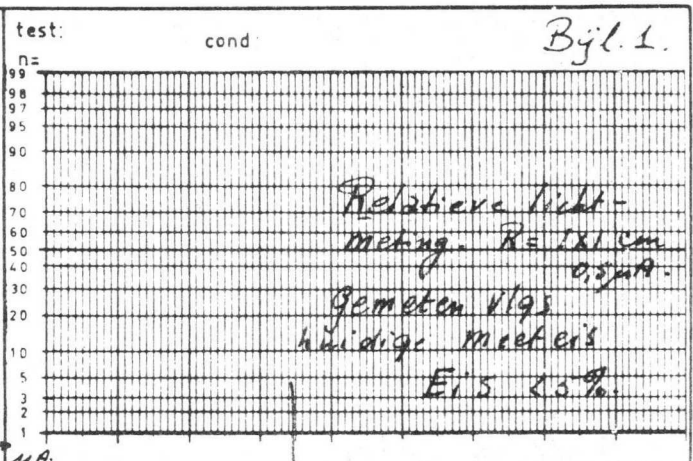 test:
cond:
Bijl. 1.
n=
99
98
97
95
90
80
70
60
50
40
30
20
10
5
3
2
1
Relatieve licht-
meting. R= 1x1 cm
0,5 µA.
Gemeten vlgs
huidige meeteis
Eis <5%.
µA.